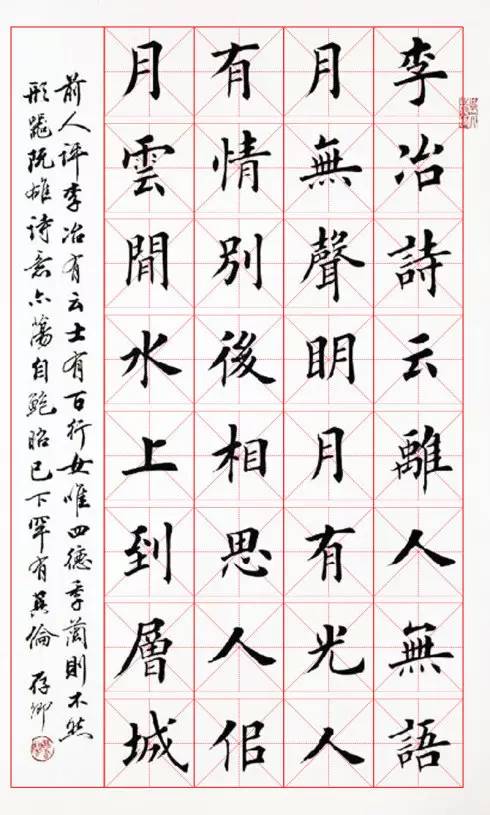 李冶詩云離人無語
月無聲眀月有光人
有情別後相思人佀
月雲間水上到層城
前人評李冶有云士有百行女唯四德季蘭則不然
形氣既雄詩意亦蕩自鮑昭已下罕有其倫 存卿